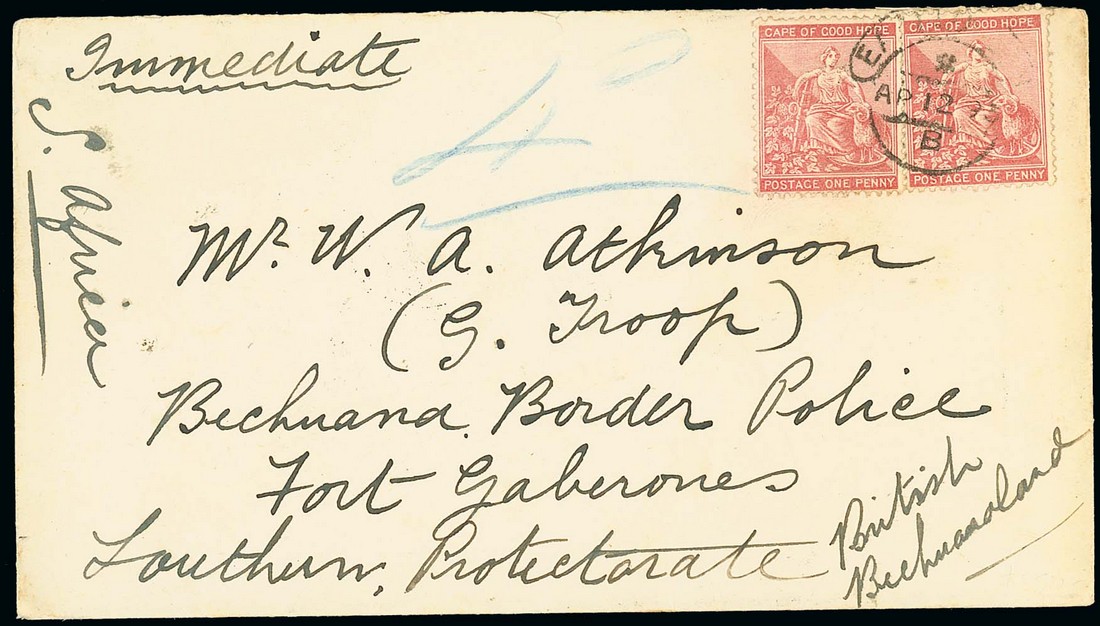 Immediate
S. Africa
4
CAPE OF GOOD HOPE
POSTAGE ONE PENNY
CAPE OF GOOD HOPE
POSTAGE ONE PENNY
AP 12
B
Mr. W. A. Atkinson
(G. Troop)
Bechuana Border Police
Fort Gaberones
Southern Protectorate
British
Bechuanaland